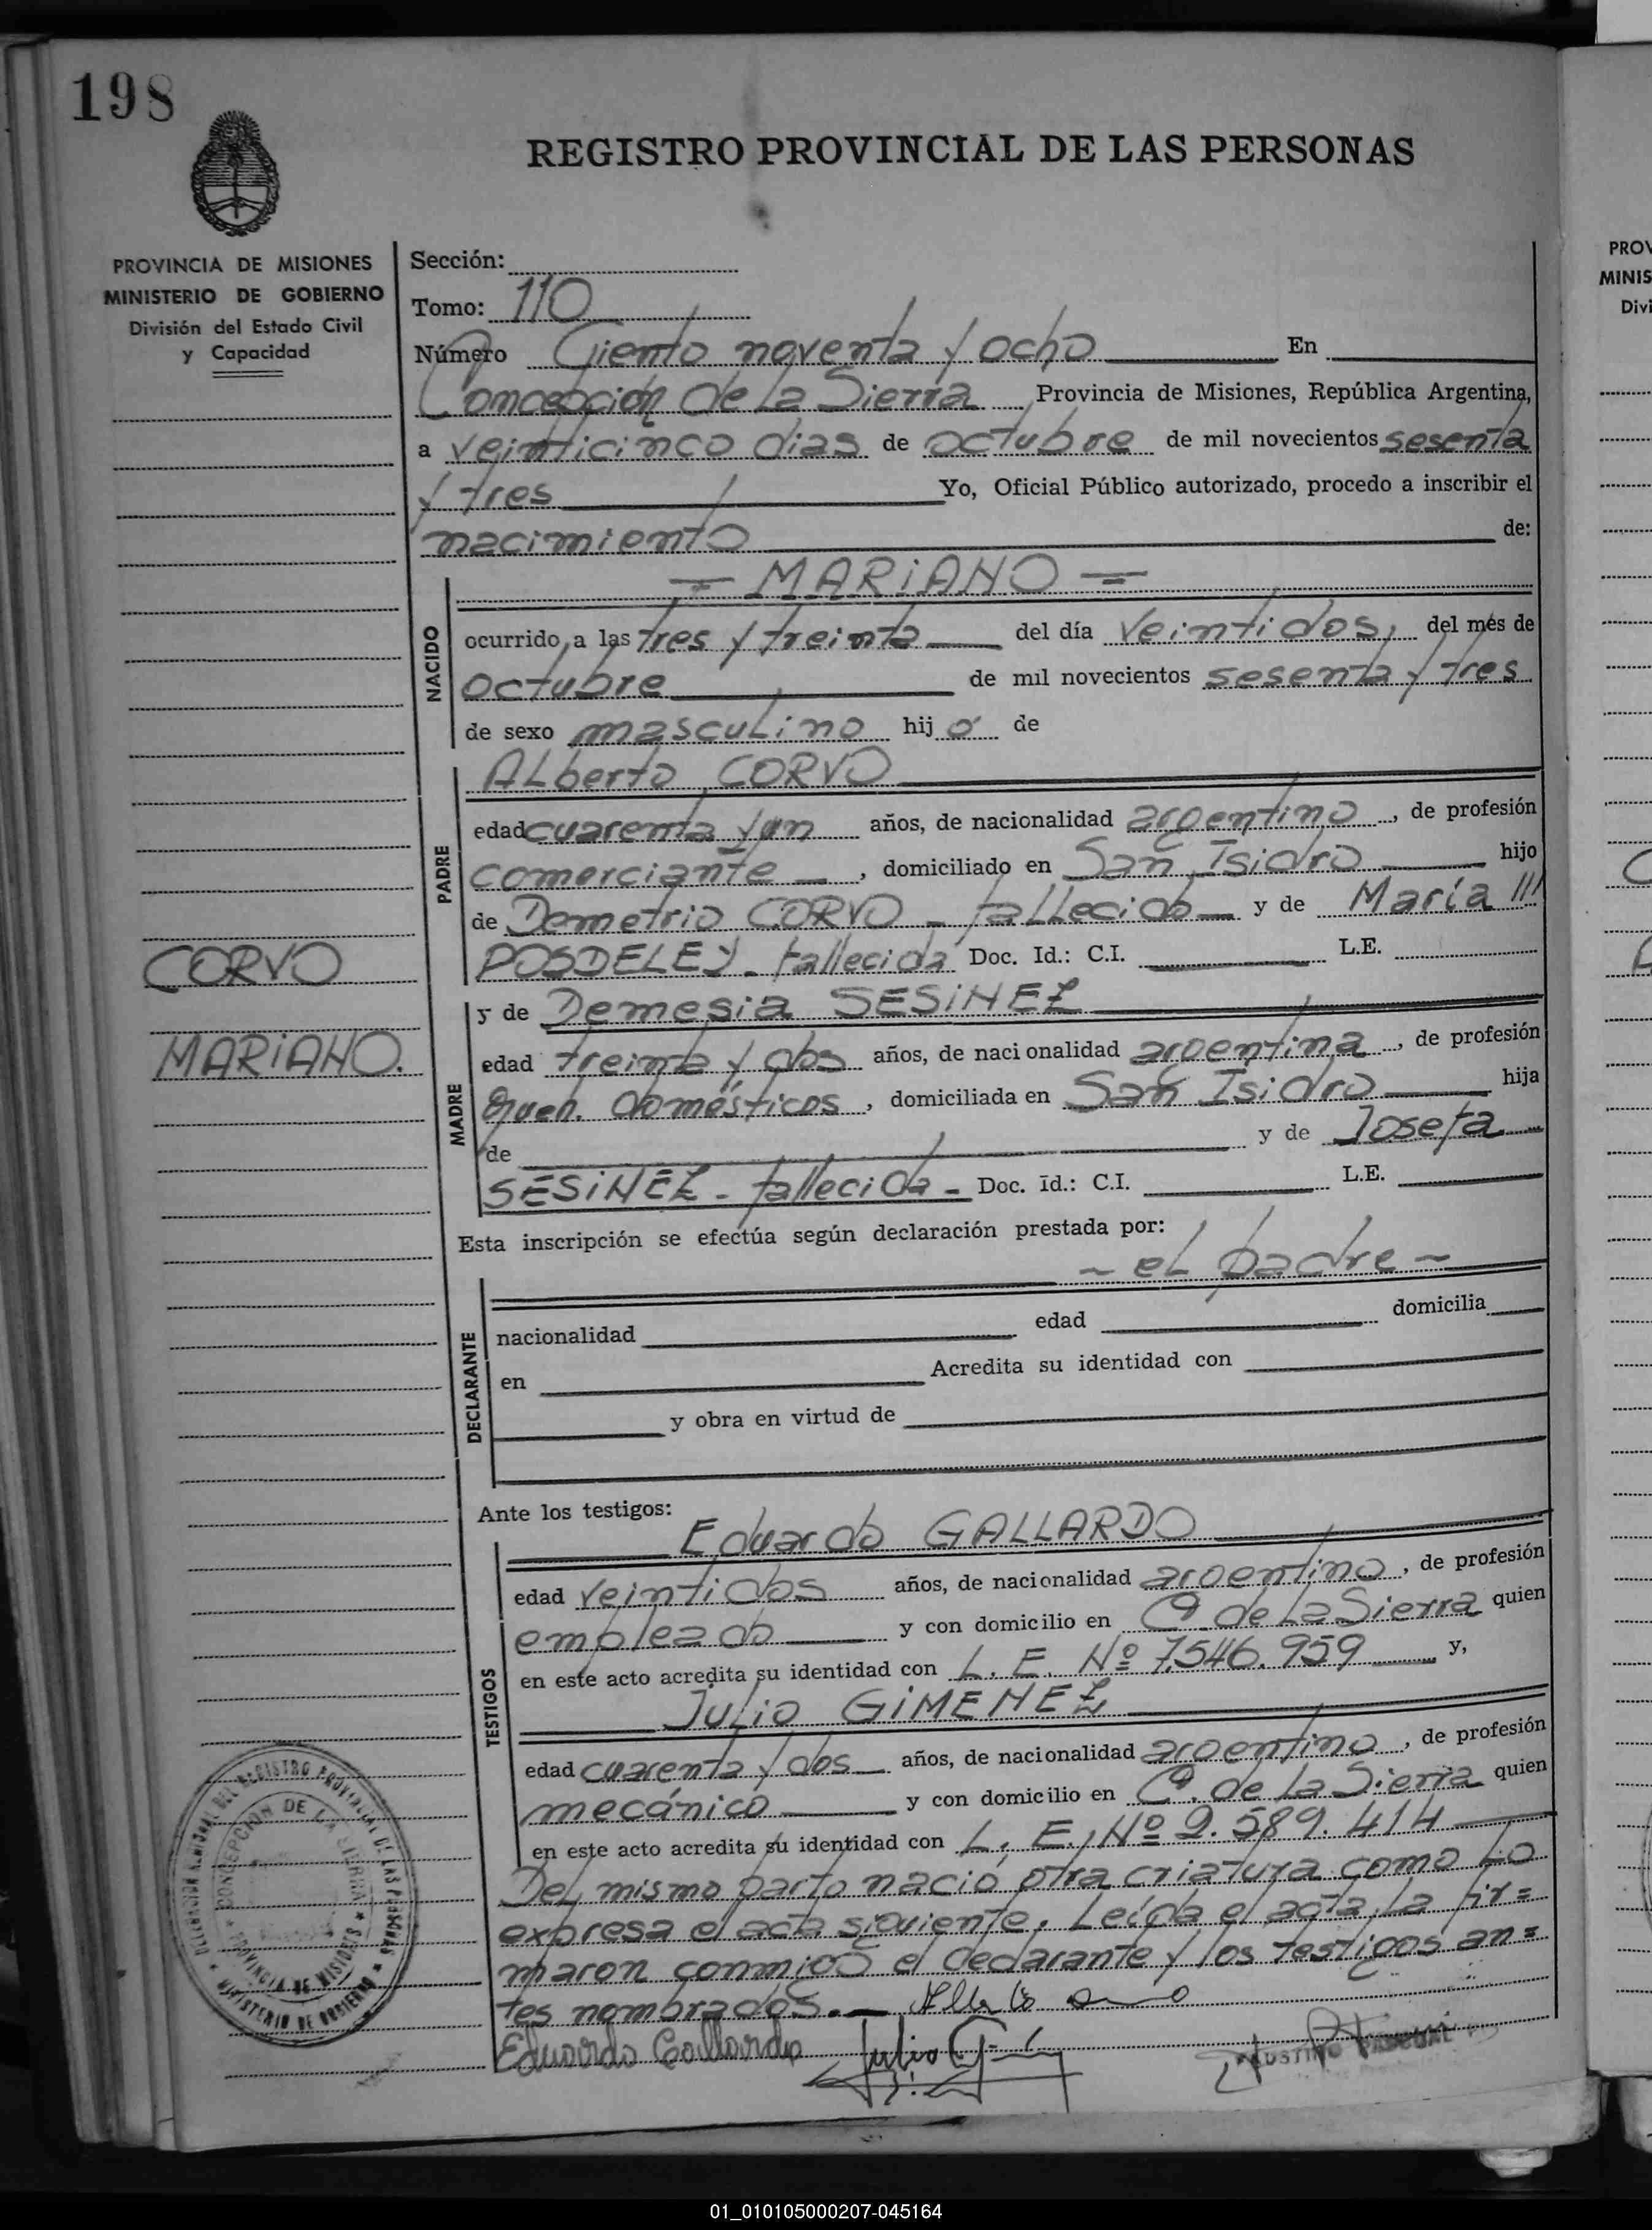 198
REGISTRO PROVINCIAL DE LAS PERSONAS
PROVINCIA DE MISIONES
MINISTERIO DE GOBIERNO
División del Estado Civil
y Capacidad
CORVO
MARIANO.
Sección:
Tomo: 110
Número Ciento noventa y ocho En
Concepción de La Sierra Provincia de Misiones, República Argentina,
a veinticinco dias de octubre de mil novecientos sesenta
y tres Yo, Oficial Público autorizado, procedo a inscribir el
nacimiento de:
= MARIANO =
NACIDO
ocurrido a las tres y treinta del día veintidos, del més de
octubre de mil novecientos sesenta y tres
de sexo masculino hij o de
PADRE
Alberto CORVO
edad cuarenta y un años, de nacionalidad argentino, de profesión
comerciante, domiciliado en San Isidro hijo
de Demetrio CORVO - fallecido y de María
POSDELEY - fallecida Doc. Id.: C.I. L.E.
MADRE
y de Demesia SESINEZ
edad treinta y dos años, de nacionalidad argentina, de profesión
queh. domésticos, domiciliada en San Isidro hija
de y de Josefa
SESINEZ - fallecida - Doc. Id.: C.I. L.E.
Esta inscripción se efectúa según declaración prestada por:
~ el padre ~
DECLARANTE
nacionalidad edad domicilia
en Acredita su identidad con
y obra en virtud de
Ante los testigos:
TESTIGOS
Eduardo GALLARDO
edad veintidos años, de nacionalidad argentino, de profesión
empleado y con domicilio en Cn. de La Sierra quien
en este acto acredita su identidad con L. E. Nº 7.546.959 y,
Julio GIMENEZ
edad cuarenta y dos años, de nacionalidad argentino, de profesión
mecánico y con domicilio en Cn. de la Sierra quien
en este acto acredita su identidad con L. E. Nº 2.589.414
Del mismo parto nació otra criatura como lo
expresa el acta siguiente. Leída el acta, la fir=
maron conmigo el declarante y los testigos an=
tes nombrados.-
Eduardo Gallardo Julio
DEL REGISTRO PROVINCIAL DE LAS PERSONAS
CONCEPCION DE LA SIERRA
PROVINCIA DE MISIONES
MINISTERIO DE GOBIERNO
PROV
MINIS
Divi
01_010105000207-045164